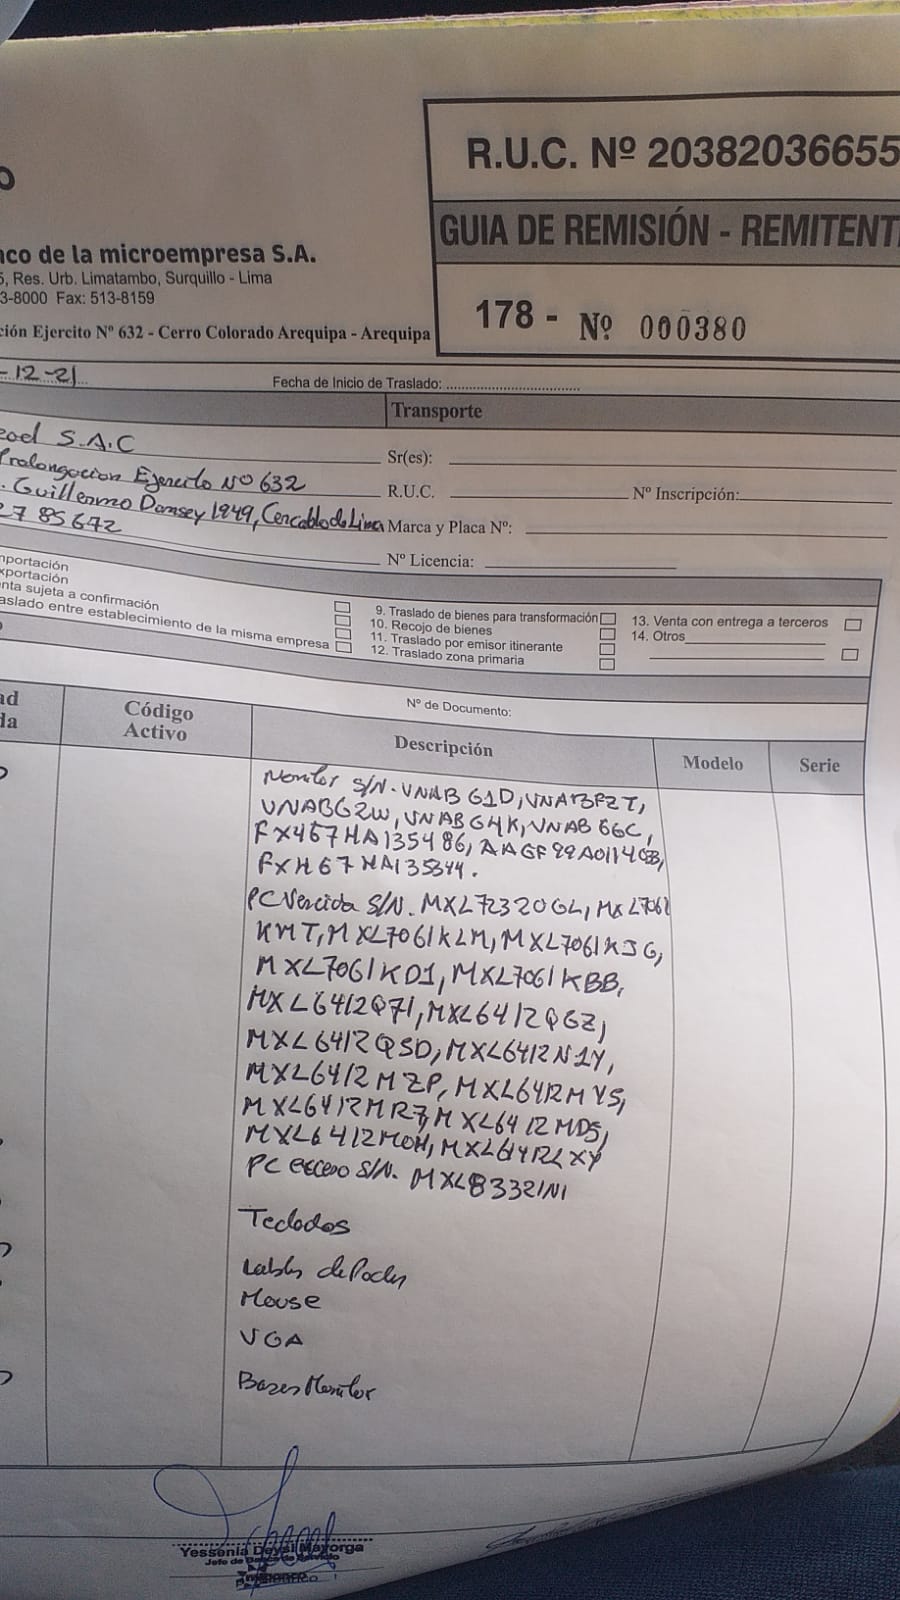 R.U.C. Nº 20382036655
GUIA DE REMISIÓN - REMITENT
178 - Nº 000380
nco de la microempresa S.A.
5, Res. Urb. Limatambo, Surquillo - Lima
3-8000 Fax: 513-8159
ción Ejercito Nº 632 - Cerro Colorado Arequipa - Arequipa
-12-21
Fecha de Inicio de Traslado:
Transporte
S.A.C
Sr(es):
Prolongacion Ejercito Nº 632
R.U.C.
Nº Inscripción:
Guillermo Dansey 1949, Cercado de Lima
Marca y Placa Nº:
27 85672
Nº Licencia:
mportación
xportación
nta sujeta a confirmación
aslado entre establecimiento de la misma empresa
9. Traslado de bienes para transformación
10. Recojo de bienes
11. Traslado por emisor itinerante
12. Traslado zona primaria
13. Venta con entrega a terceros
14. Otros
Nº de Documento:
ad
da
Código
Activo
Descripción
Modelo
Serie
Monitor S/N. VNAB G1D,
VNABG2W, VNABG4K, VNAB66C,
FX467HA135486,
FXH67HA135844.
PC Vencida S/N. MXL72320GL, MXL7061
KMT, MXL7061KLM, MXL7061KJG,
MXL7061KD1, MXL7061KBB,
MXL6412Q71, MXL6412QGZ,
MXL6412QSD, MXL6412N1Y,
MXL6412MZP, MXL6412MYS,
MXL6412MR7, MXL6412MD5,
MXL6412MOH, MXL6412LXY
PC exceso S/N. MXL83321N1
Teclados
Cables de Poder
Mouse
VGA
Bases Monitor
Yessenia Deysi Mayorga